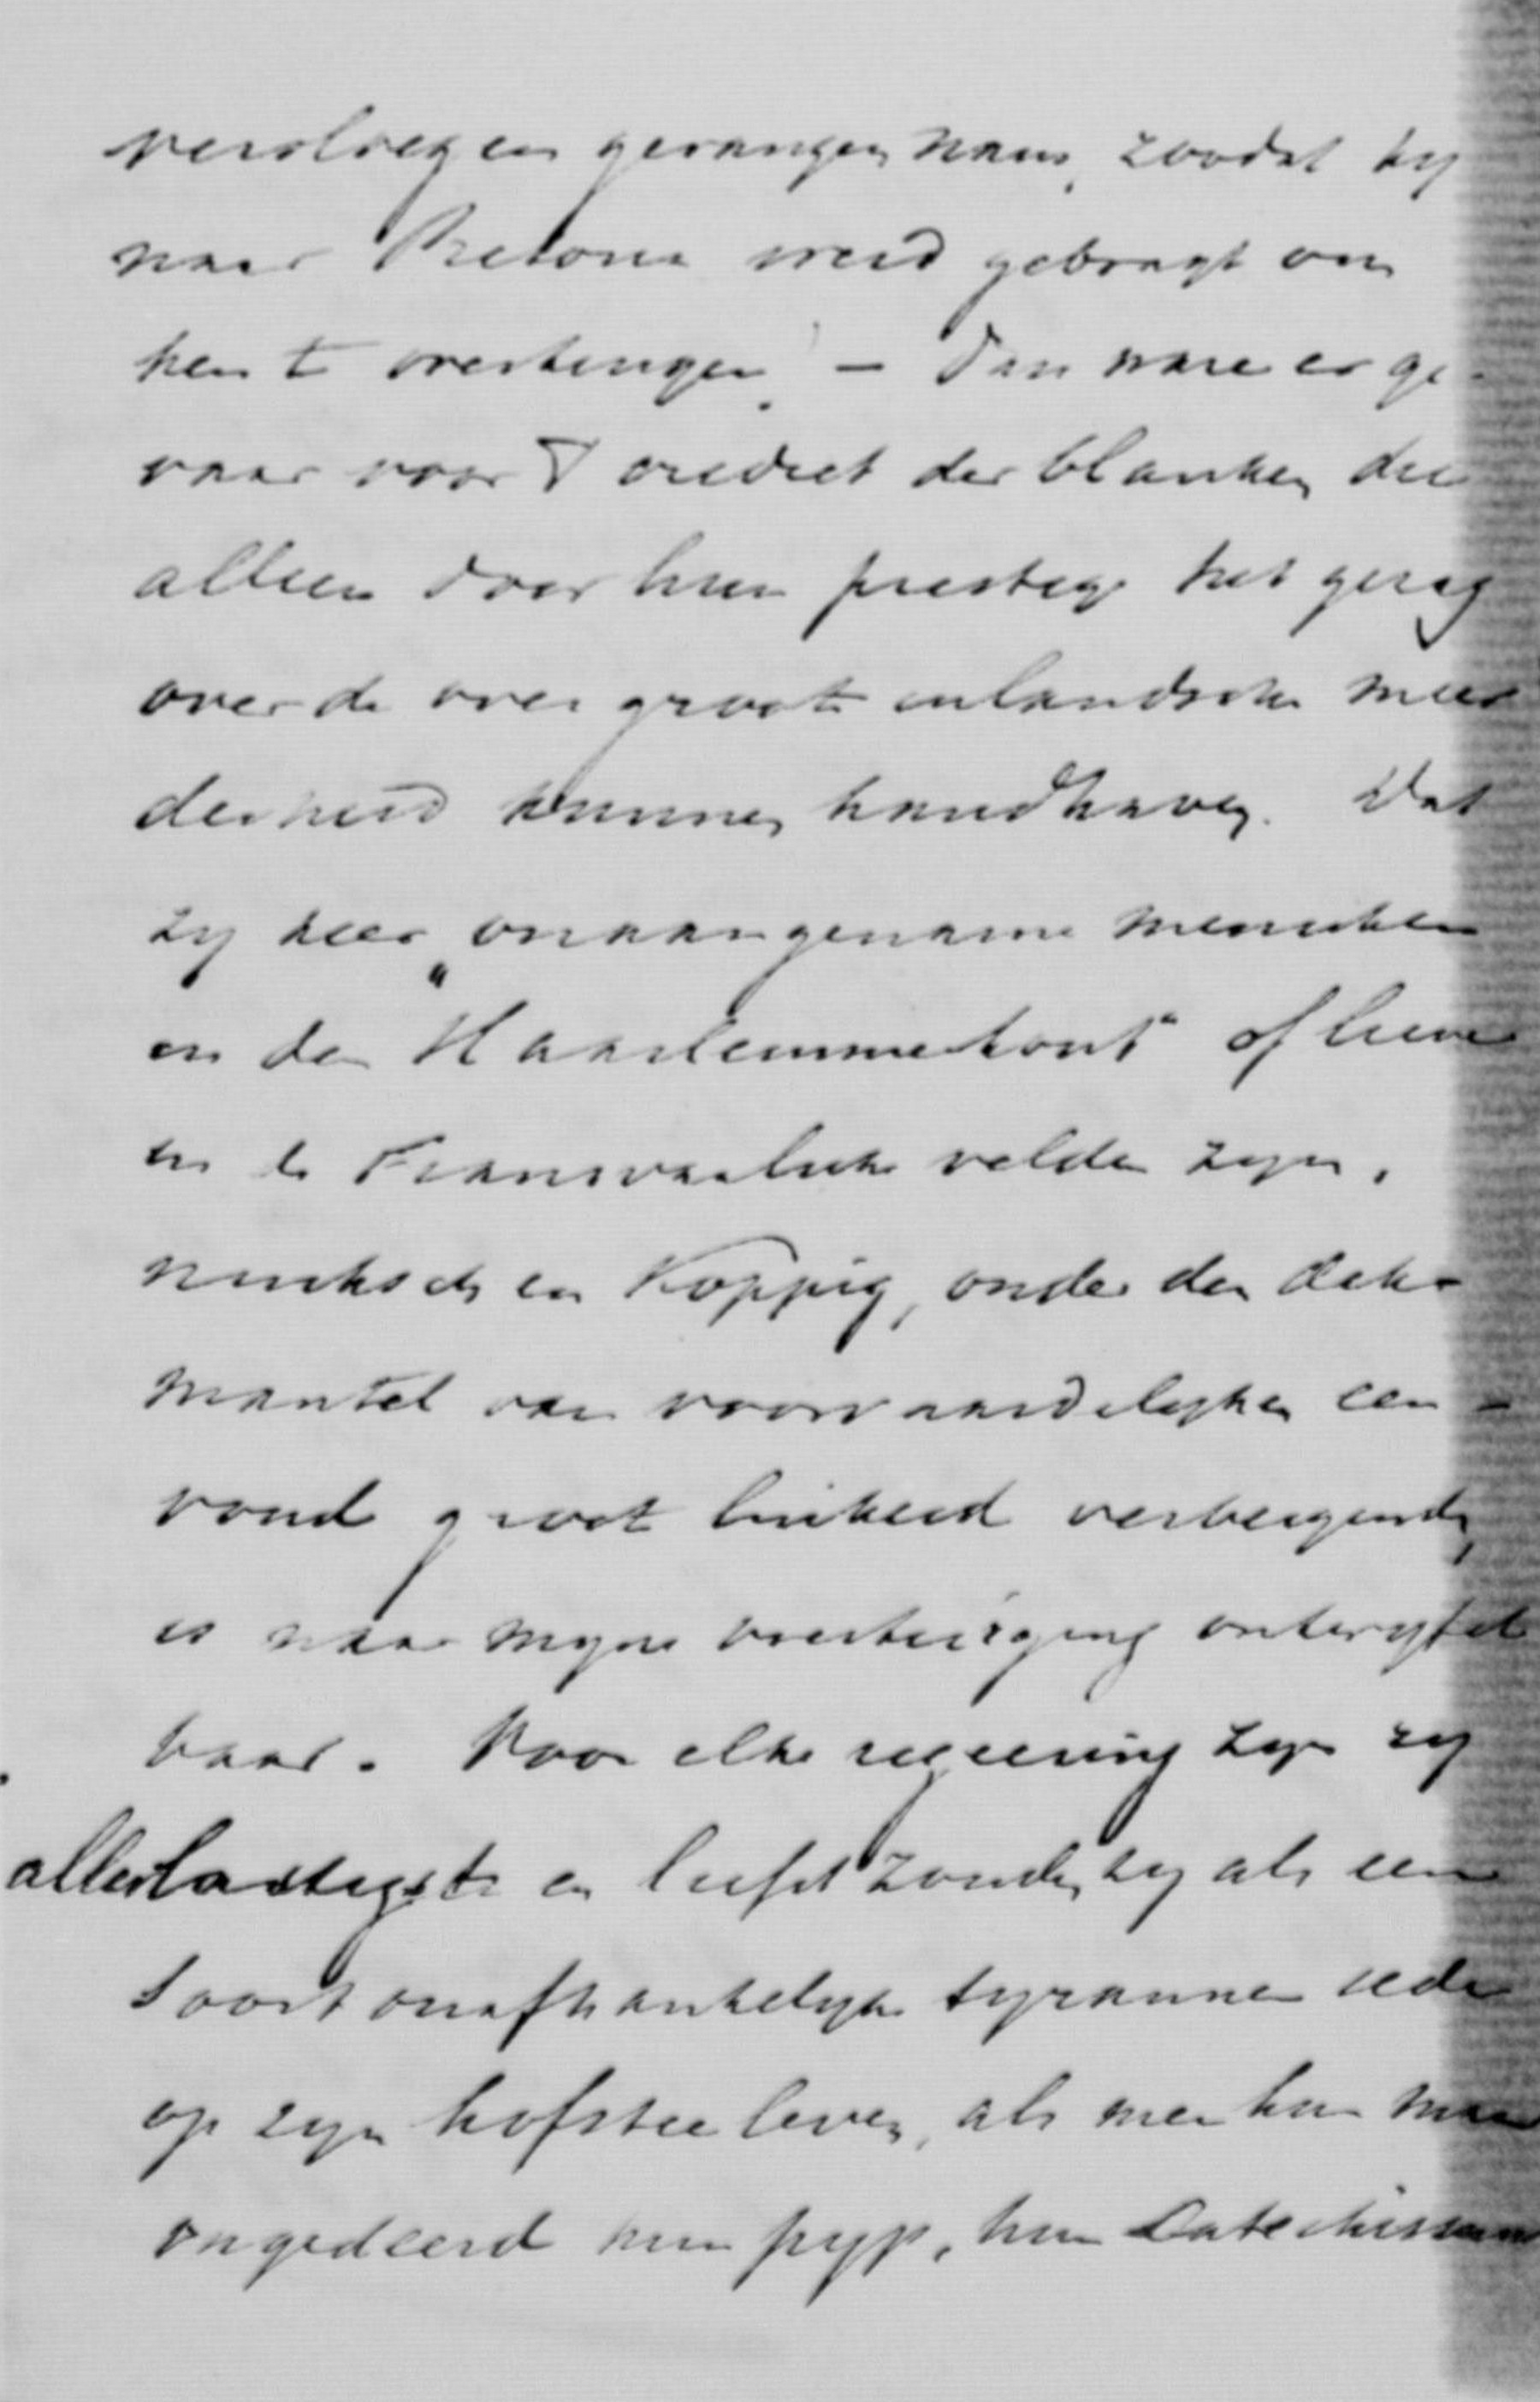 versloeg en gevangen nam, zoodat hy
naar Pretoria werd gebragt om
hen te overtuigen. — Dan ware er ge-
vaar voor 't crediet der blanken die
alleen door hun prestige het gezag
over de over groote inlandsche meer
derheid kunnen handhaven. Dat
zy zeer „onaangename menschen
in den Haarlemmerhout" of liever
in de Transvaalsche velden zyn,
nuksch en koppig, onder den dek-
mantel van voorvaderlyken een-
voud groot luiheid verbergend,
is naar myne overtuiging ontwyfel
baar. Voor elke regeering zyn zy
allerlastigst en liefst zouden zy als een
soort onafhankelyke tyrannen ieder
op zyn hofstee leven, als men hun maar
ongedeerd hun pyp, hun Catechismus